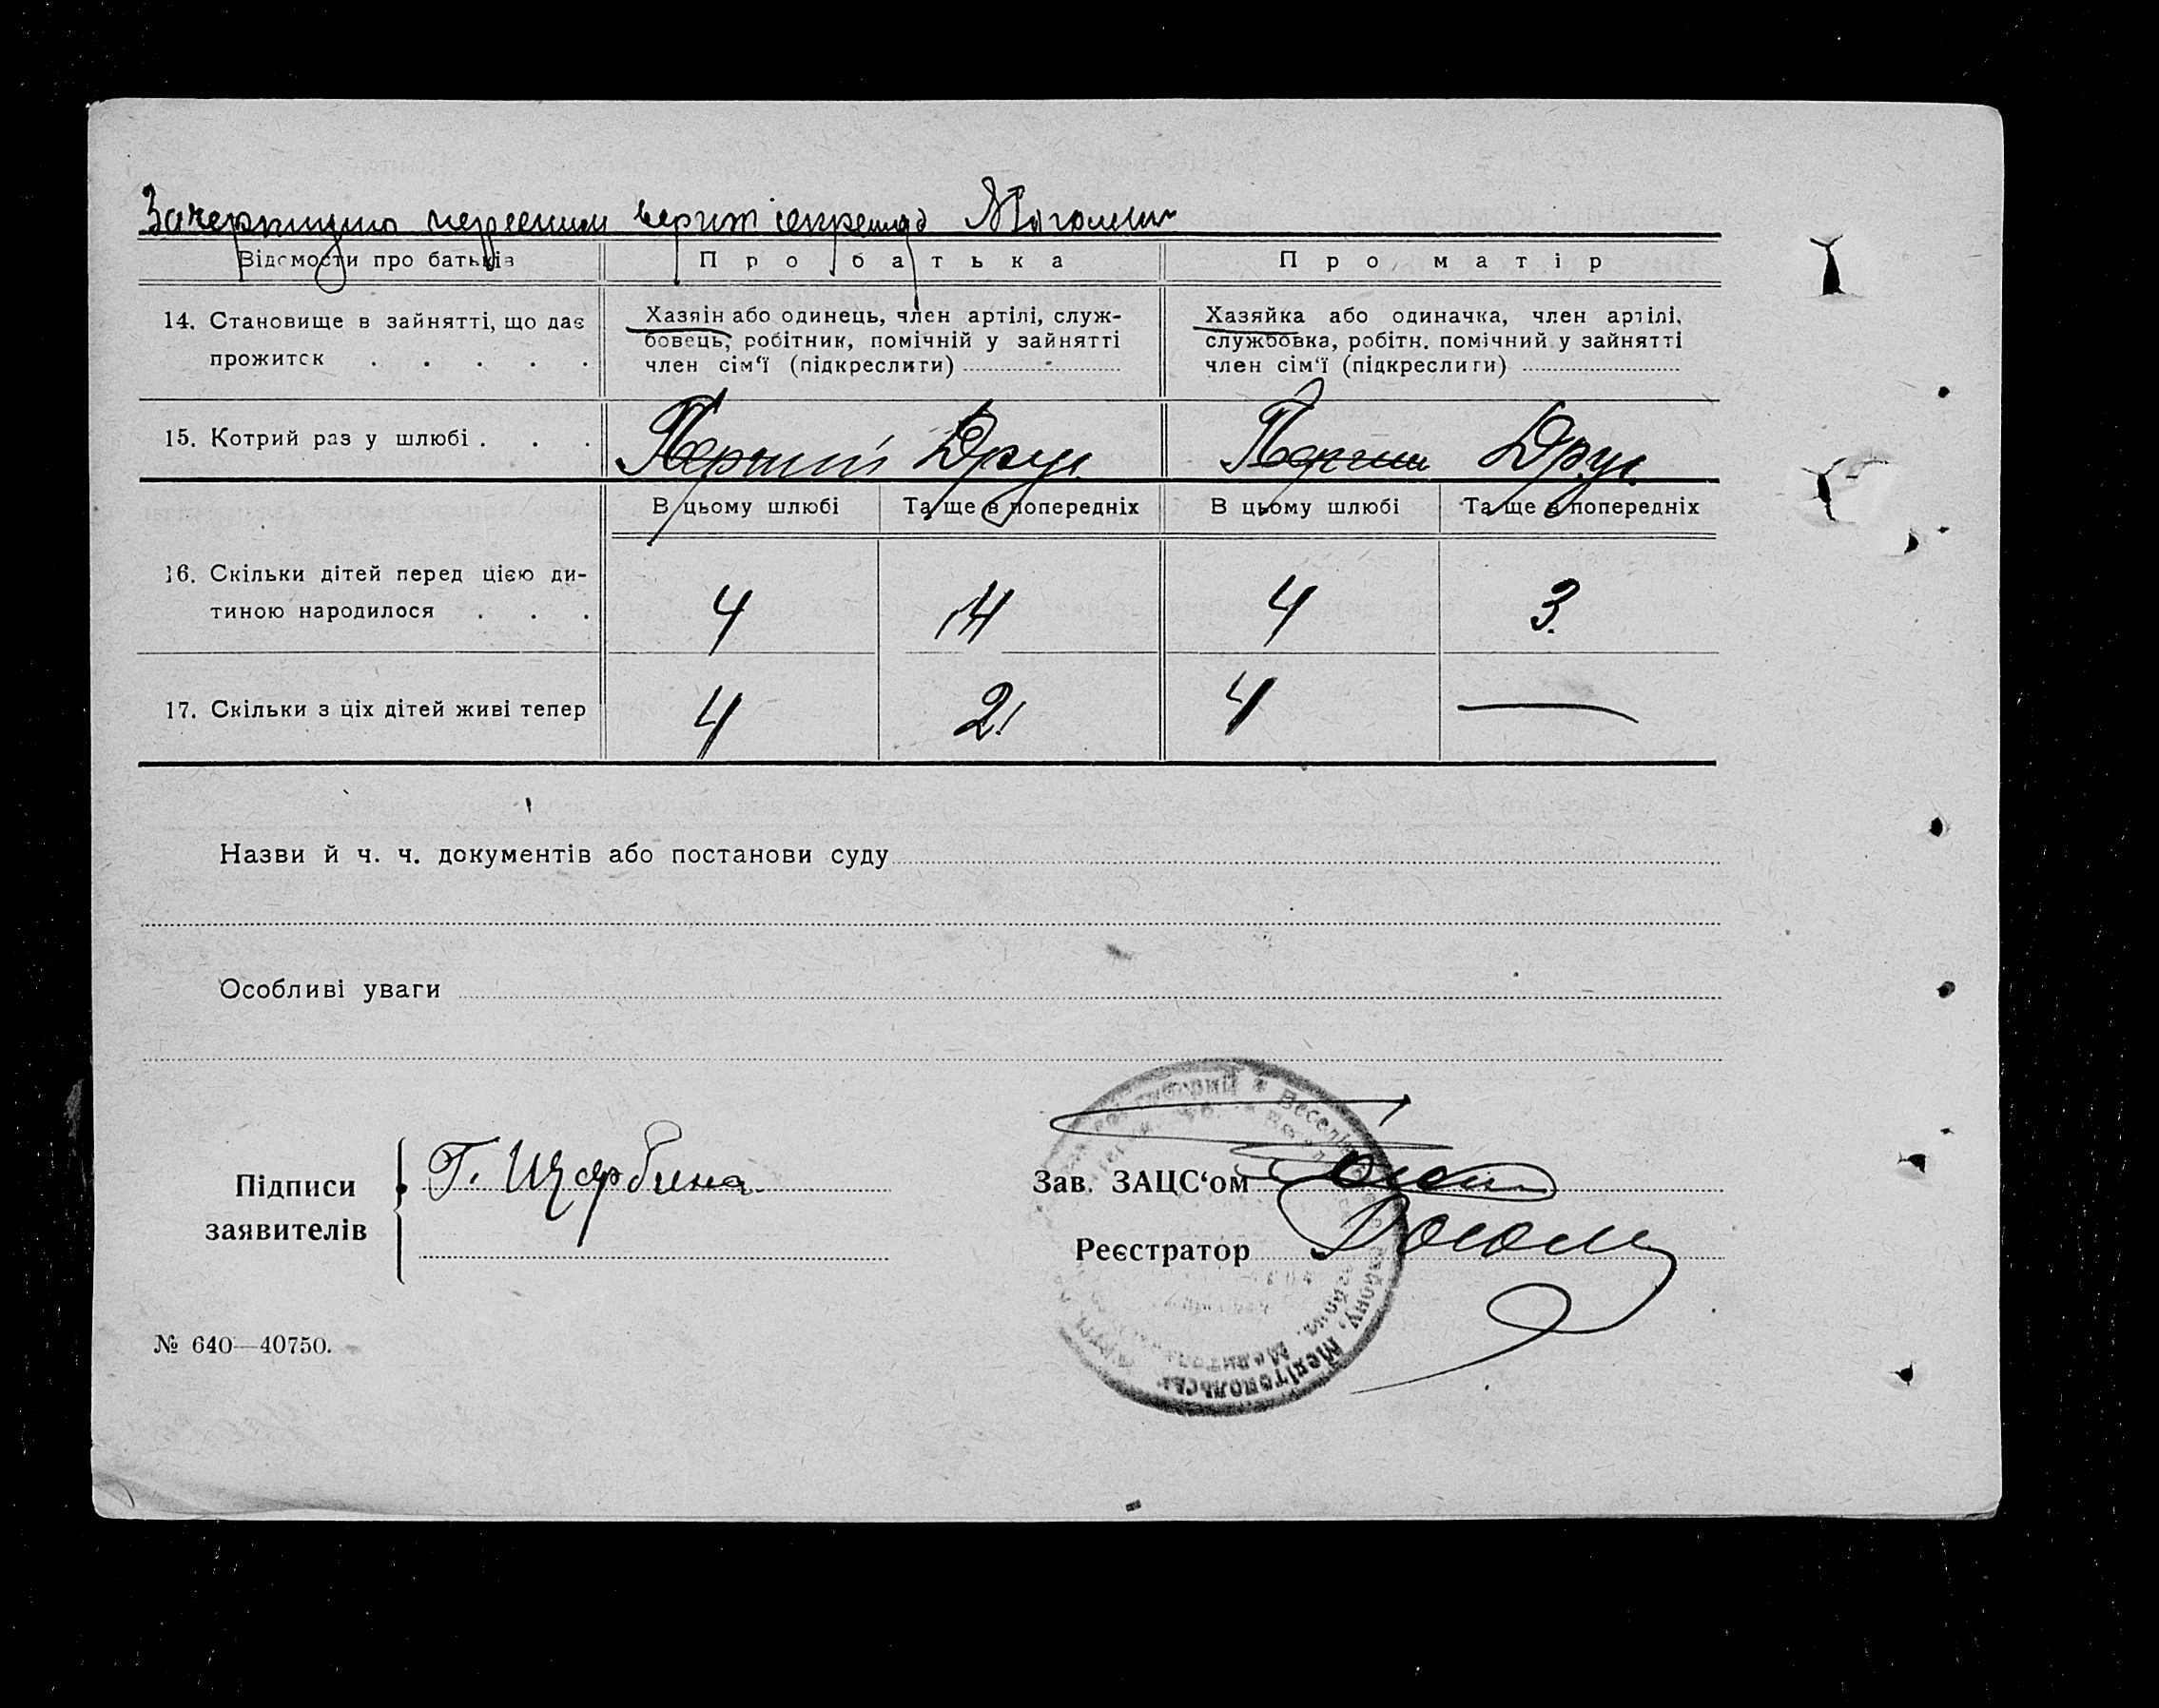 Зачеркнуто
Відомости про батьків
Про батька
Про матір
14. Становище в зайнятті, що дає
прожиток . . . . .
Хазяін або одинець, член артілі, служ-
бовець, робітник, помічній у зайнятті
член сім‘ї (підкреслити)
Хазяйка або одиначка, член артілі,
службовка, робітн. помічний у зайнятті
член сім‘ї (підкреслити)
15. Котрий раз у шлюбі . . .
Перший Друг.
Перший Друг.
В цьому шлюбі
Та ще в попередніх
В цьому шлюбі
Та ще в попередніх
16. Скільки дітей перед цією ди-
тиною народилося . . .
4
14
4
3.
17. Скільки з ціх дітей живі тепер
4
2
4
—
Назви й ч. ч. документів або постанови суду
Особливі уваги
Підписи
заявителів
Г. Щербина
Зав. ЗАЦС‘ом
Реєстратор
№ 640—40750.